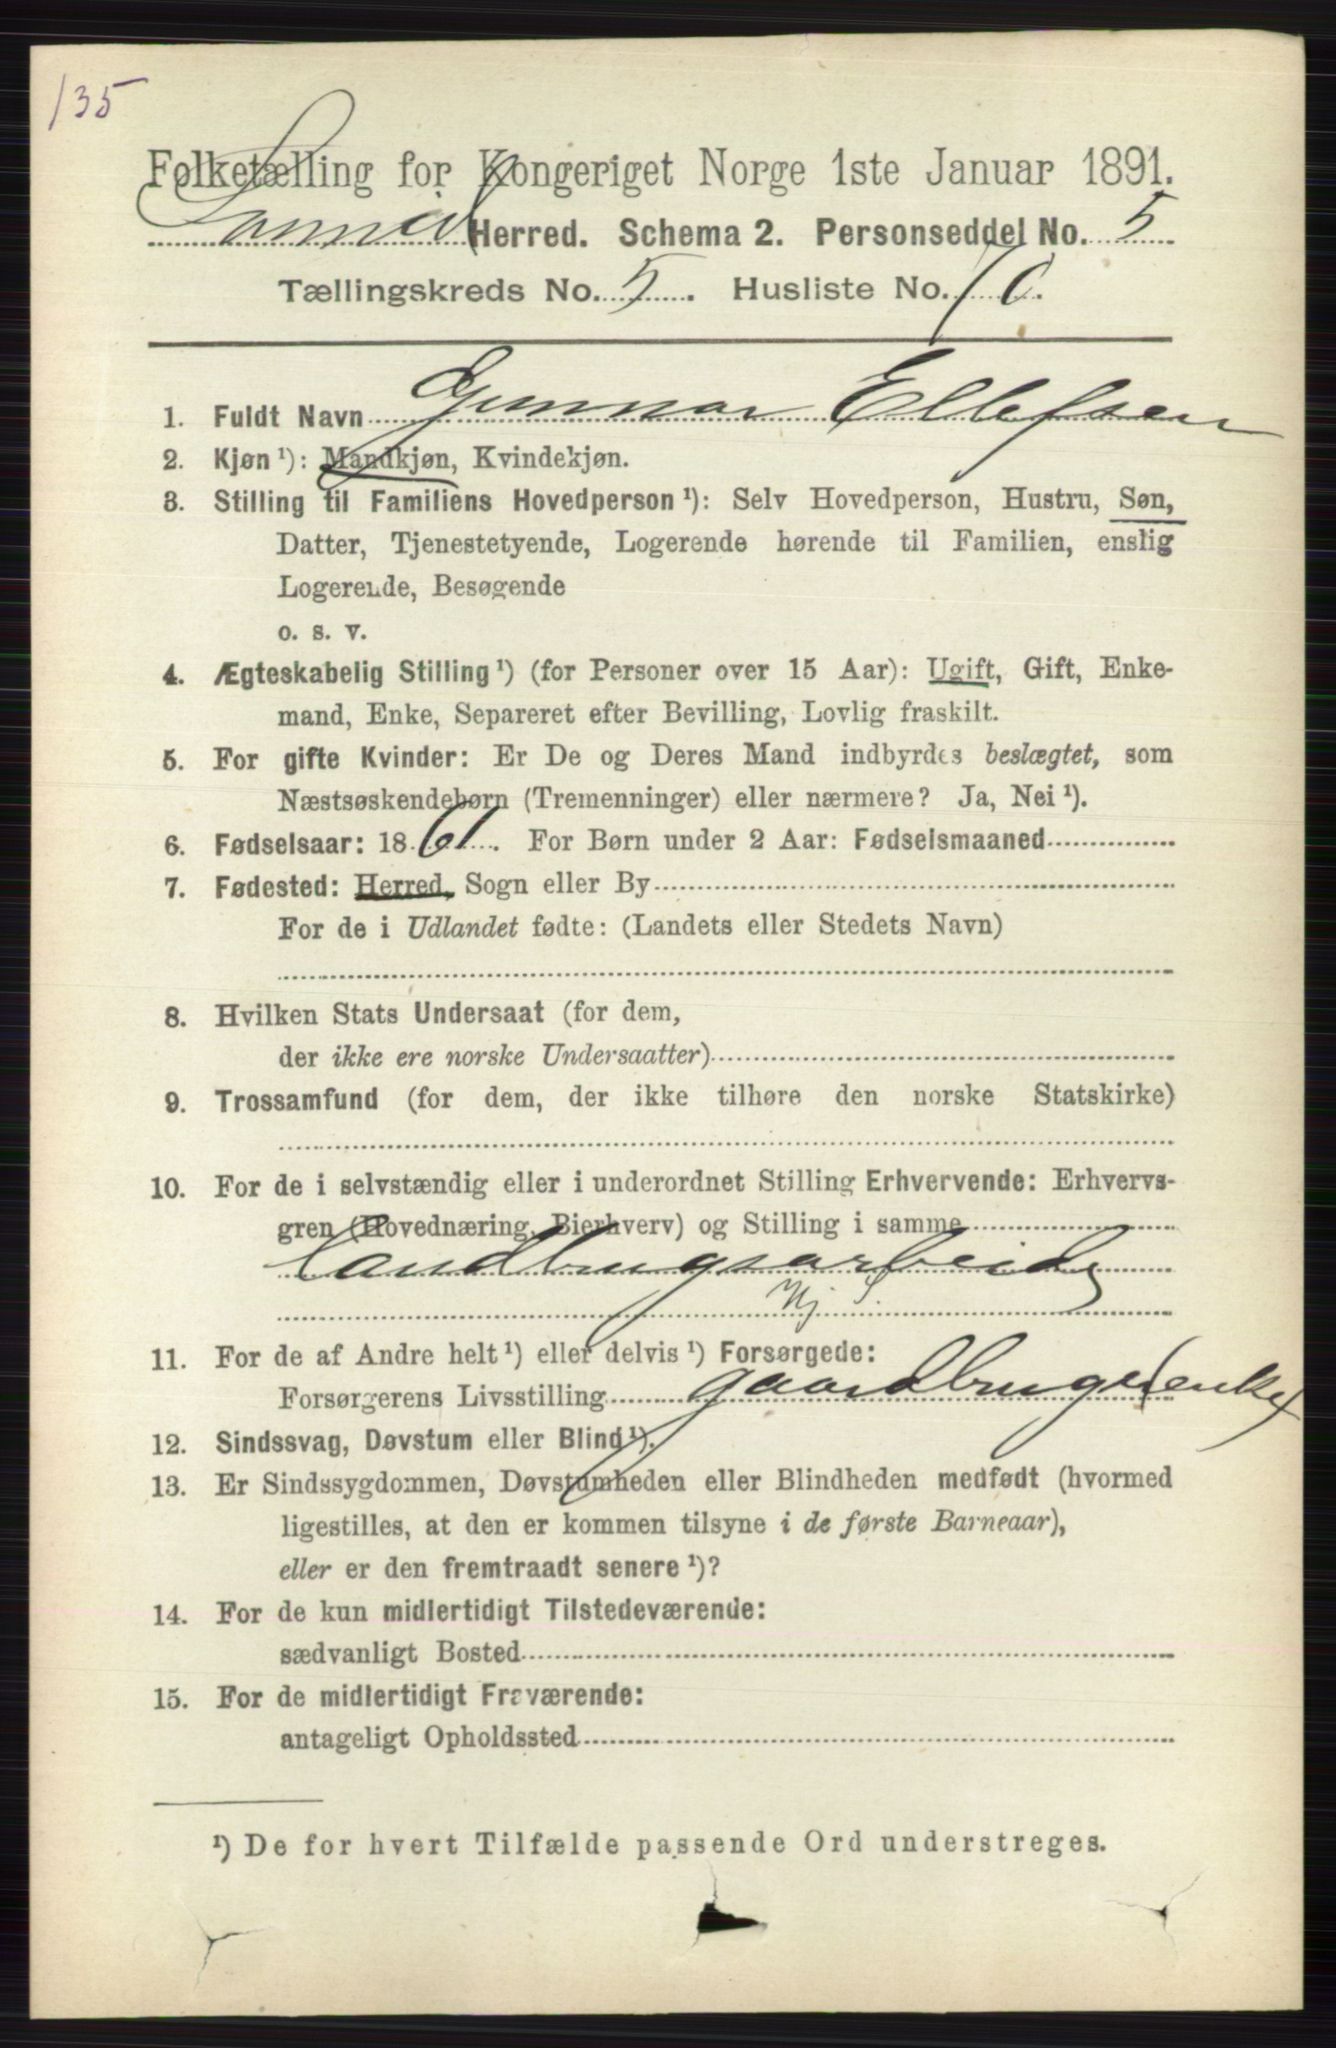 135
Folketælling for Kongeriget Norge 1ste Januar 1891.
Herred. Schema 2. Personseddel No. 5
Tællingskreds No. 5. Husliste No. 70.
1. Fuldt Navn Gunnar Ellefsen
2. Kjøn ¹): Mandkjøn, Kvindekjøn.
3. Stilling til Familiens Hovedperson ¹): Selv Hovedperson, Hustru, Søn,
Datter, Tjenestetyende, Logerende hørende til Familien, enslig
Logerende, Besøgende
o. s. v.
4. Ægteskabelig Stilling ¹) (for Personer over 15 Aar): Ugift, Gift, Enke-
mand, Enke, Separeret efter Bevilling, Lovlig fraskilt.
5. For gifte Kvinder: Er De og Deres Mand indbyrdes beslægtet, som
Næstsøskendebørn (Tremenninger) eller nærmere? Ja, Nei ¹).
6. Fødselsaar: 1861. For Børn under 2 Aar: Fødselsmaaned
7. Fødested: Herred, Sogn eller By
For de i Udlandet fødte: (Landets eller Stedets Navn)
8. Hvilken Stats Undersaat (for dem,
der ikke ere norske Undersaatter)
9. Trossamfund (for dem, der ikke tilhøre den norske Statskirke)
10. For de i selvstændig eller i underordnet Stilling Erhvervende: Erhvervs-
gren (Hovednæring, Bierhverv) og Stilling i samme
Landbrugsarbeide
Hj S.
11. For de af Andre helt ¹) eller delvis ¹) Forsørgede:
Forsørgerens Livsstilling gaardbruger(enke)
12. Sindssvag, Døvstum eller Blind ¹).
13. Er Sindssygdommen, Døvstumheden eller Blindheden medfødt (hvormed
ligestilles, at den er kommen tilsyne i de første Barneaar),
eller er den fremtraadt senere ¹)?
14. For de kun midlertidigt Tilstedeværende:
sædvanligt Bosted
15. For de midlertidigt Fraværende:
antageligt Opholdssted
¹) De for hvert Tilfælde passende Ord understreges.